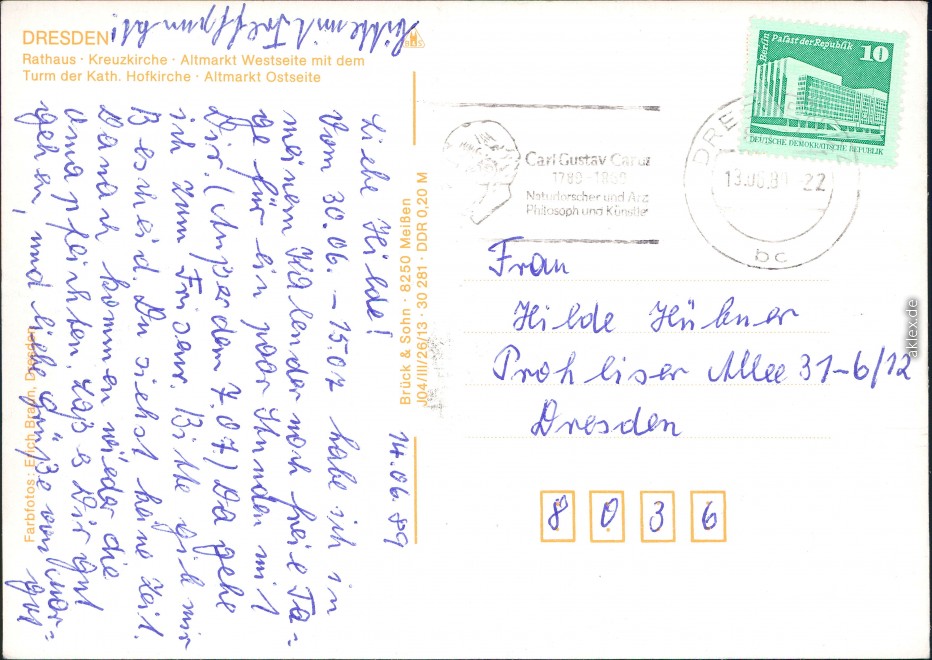 DRESDEN
Rathaus · Kreuzkirche · Altmarkt Westseite mit dem
Turm der Kath. Hofkirche · Altmarkt Ostseite
14.06.89
Liebe Hilde!
Vom 30.06. – 15.07 habe ich in
meinem Kalender noch freie Ta=
ge für ein paar Stunden mit
Dir. (Außerdem 7.07.) Da gehe
ich zum Frisör. Bitte gib mir
Bescheid. Du siehst keine Zeit.
Danach kommen wieder die
Omapflichten. Laß es Dir gut
gehen, und liebe Grüße von
Bitte mit Treffpunkt!
Farbfotos: Erich Braun, Dresden
Brück & Sohn · 8250 Meißen
J04/III/26/13 · 30 281 · DDR 0,20 M
Carl Gustav Carus
1789-1869
Naturforscher und Arzt
Philosoph und Künstler
DRE
22
bc
Berlin Palast der Republik
10
DEUTSCHE DEMOKRATISCHE REPUBLIK
Frau
Hilde Hübner
Prohliser Allee 31-6/12
Dresden
8036
aklex.de